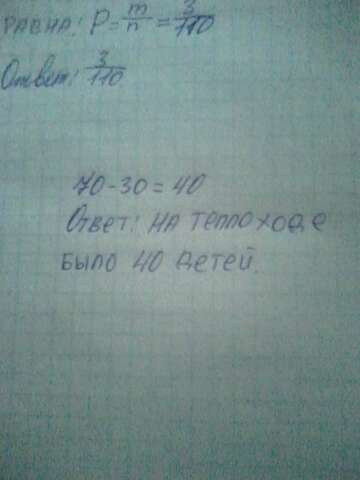 равна: P = m/n = 3/110
Ответ: 3/110
70-30=40
Ответ: на теплоходе
было 40 детей.